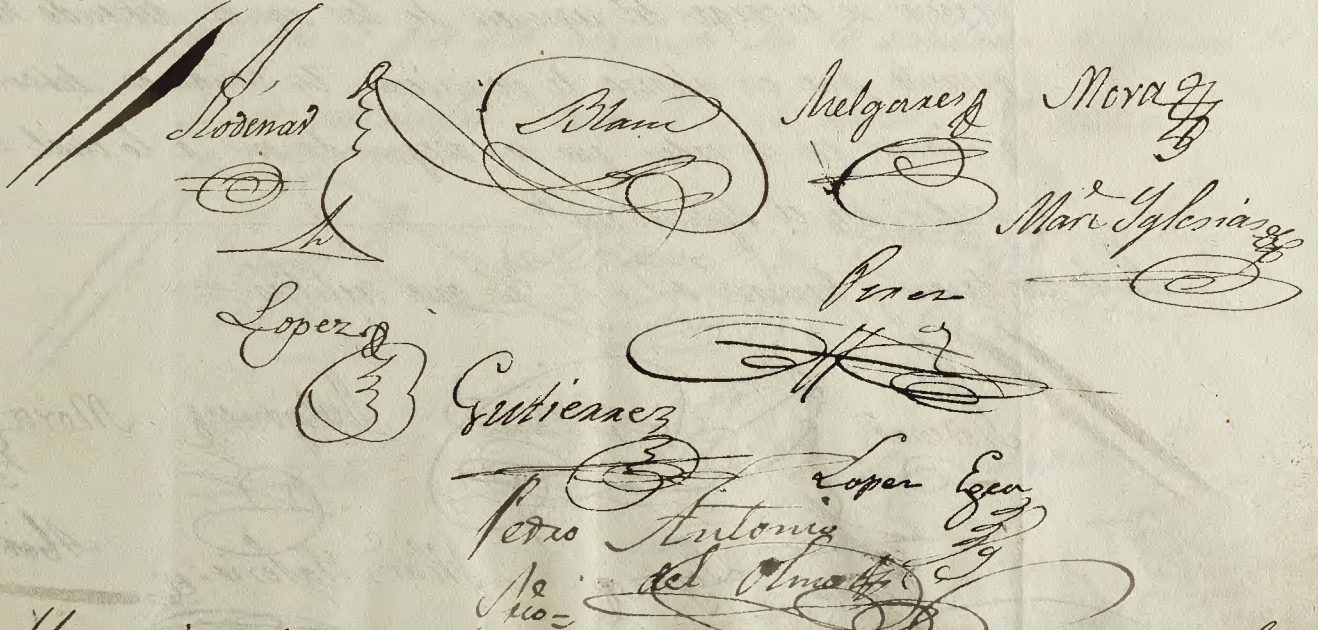 Rodenas
Blanc
Melgares
Mora
Man.e Yglesias
Lopez
Perez
Gutierrez
Lopez Egea
Pedro Antonio
del Olmo
Srio=